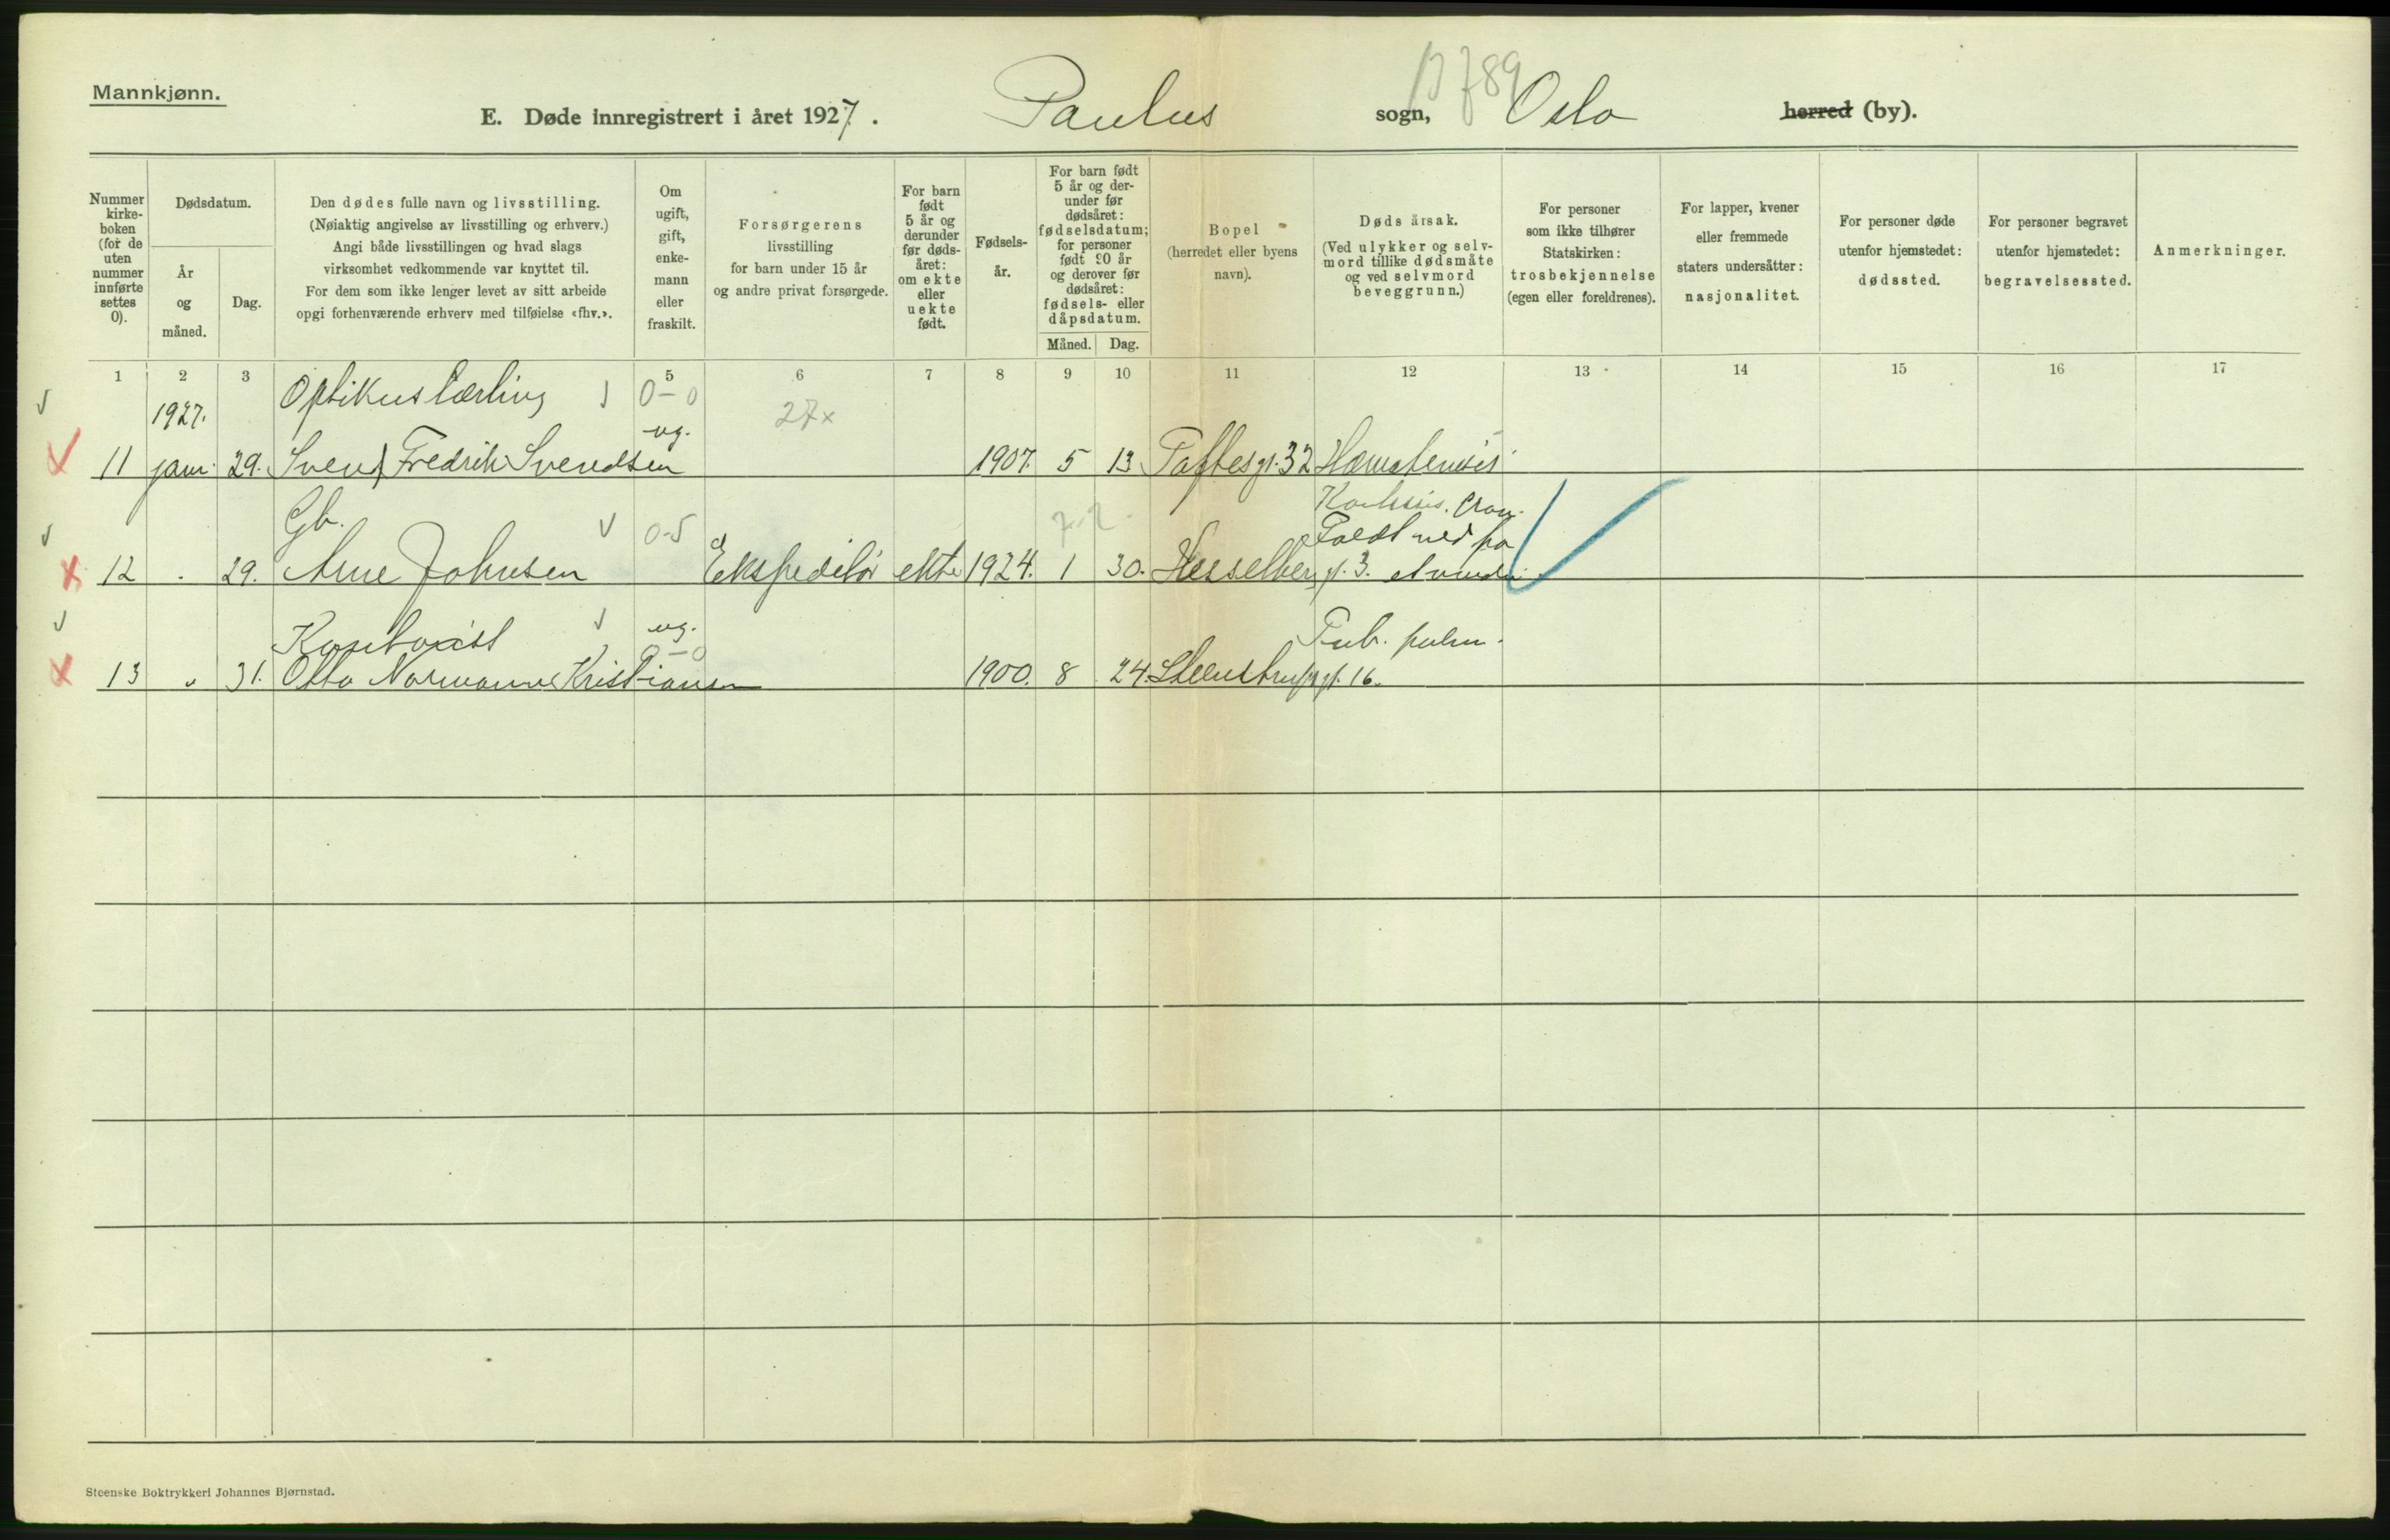 Mannkjønn.
E. Døde innregistrert i året 1927. Paulus sogn, Oslo herred (by).
Nummer
kirke-
boken
(for de
uten
nummer
innførte
settes
0).
Dødsdatum.
År
og
måned.
Dag.
Den dødes fulle navn og livsstilling.
(Nøiaktig angivelse av livsstilling og erhverv.)
Angi både livsstillingen og hvad slags
virksomhet vedkommende var knyttet til.
For dem som ikke lenger levet av sitt arbeide
opgi forhenværende erhverv med tilføielse «fhv.».
Om
ugift,
gift,
enke-
mann
eller
fraskilt.
Forsørgerens
livsstilling
for barn under 15 år
og andre privat forsørgede.
For barn
født
5 år og
derunder
før døds-
året:
om ekte
eller
uekte
født.
Fødsels-
år.
For barn født
5 år og der-
under før
dødsåret:
fødselsdatum;
for personer
født 90 år
og derover før
dødsåret:
fødsels- eller
dåpsdatum.
Måned. Dag.
Bopel
(herredet eller byens
navn).
Døds årsak.
(Ved ulykker og selv-
mord tillike dødsmåte
og ved selvmord
beveggrunn.)
For personer
som ikke tilhører
Statskirken:
trosbekjennelse
(egen eller foreldrenes).
For lapper, kvener
eller fremmede
staters undersåtter:
nasjonalitet.
For personer døde
utenfor hjemstedet:
dødssted.
For personer begravet
utenfor hjemstedet:
begravelsessted.
Anmerkninger.
1 2 3 5 6 7 8 9 10 11 12 13 14 15 16 17
1927. Optikuslærling 0-0 27x
ug.
11 jan. 29. Svend Fredrik Svendsen 1907. 5 13 Toftesgt. 32
Gb. 0-5
Faldt ned fra
12 29. Arne Johnsen Ekspeditør ekte 1924. 1 30. Hesselberggt. 3.
Kontorist ug. 0-0 Tub. pulm.
13 " 31. Otto Normann Kristiansen 1900. 8 24. Steenstrupsgt. 16.
Steenske Boktrykkeri Johannes Bjørnstad.